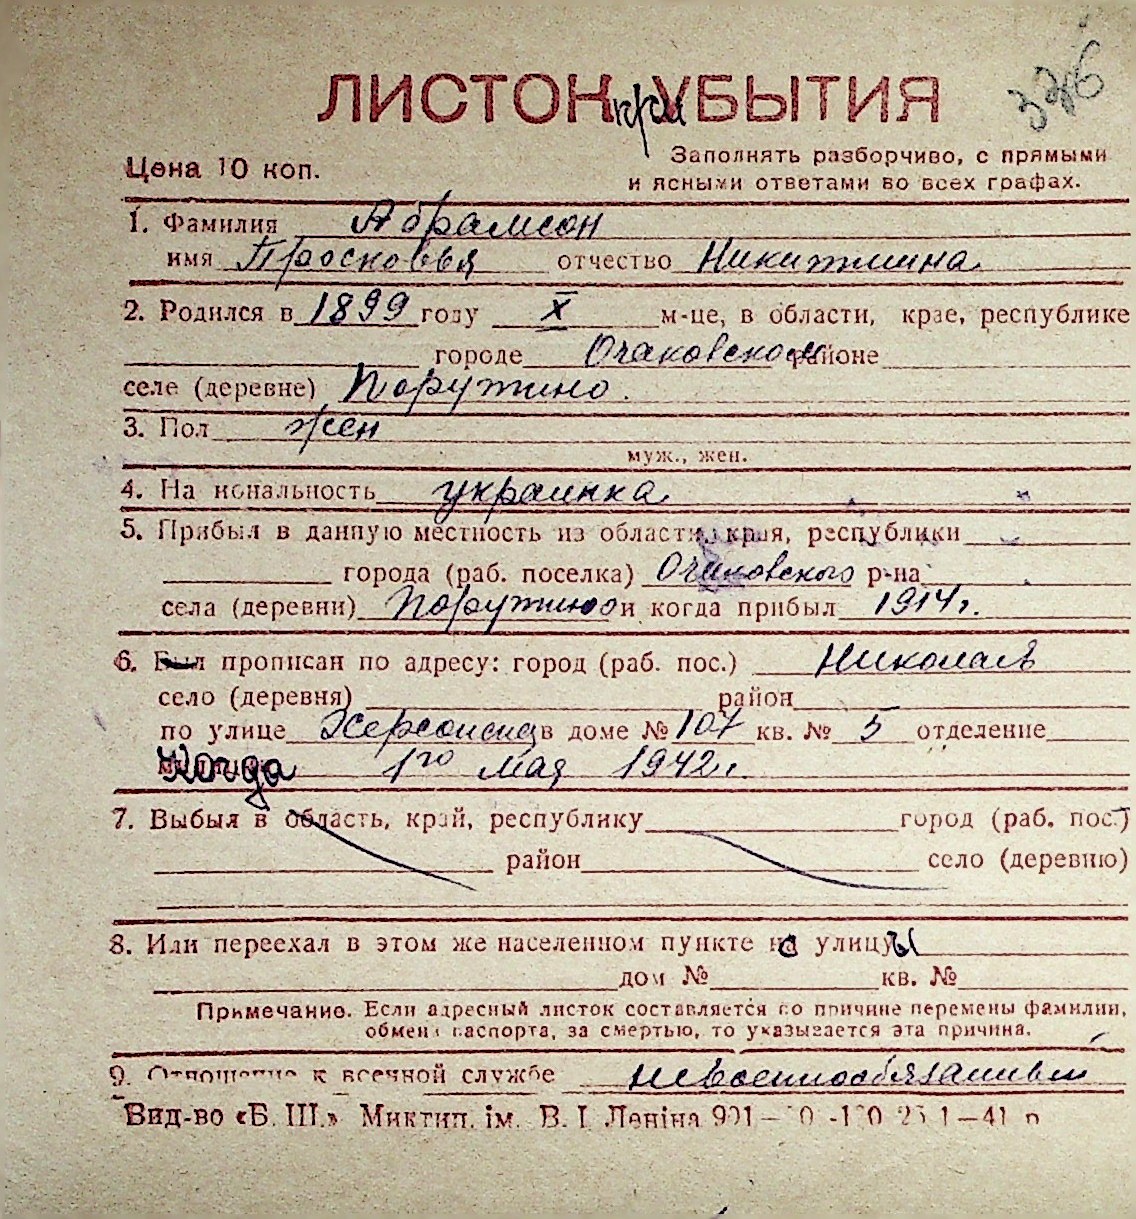 376
ЛИСТОК при УБЫТИЯ
Цена 10 коп.
Заполнять разборчиво, с прямыми
и ясными ответами во всех графах.
1. Фамилия Абрамсон
имя Просковья отчество Никитична
2. Родился в 1899 году X м-це, в области, крае, республике
городе Очаковском районе
селе (деревне) Порутино.
3. Пол жен
муж., жен.
4. Национальность украинка
5. Прибыл в данную местность из области, края, республики
города (раб. поселка) Очаковского р-на
села (деревни) Порутино и когда прибыл 1914 г.
6. Был прописан по адресу: город (раб. пос.) Николаев
село (деревня) район
по улице Херсонская в доме № 107 кв. № 5 отделение
Когда 1го мая 1942 г.
7. Выбыл в область, край, республику город (раб. пос.)
район село (деревню)
8. Или переехал в этом же населенном пункте с улицы
дом № кв. №
Примечание. Если адресный листок составляется по причине перемены фамилии,
обмена паспорта, за смертью, то указывается эта причина.
9. Отношение к военной службе невоеннообязанный
Вид-во «Б. Ш.» Миктип. ім. В. І. Леніна